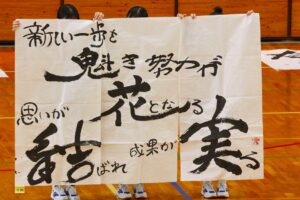 新しい一歩を
魁き努力が
花となる
思いが
結ばれ
成果が
実る